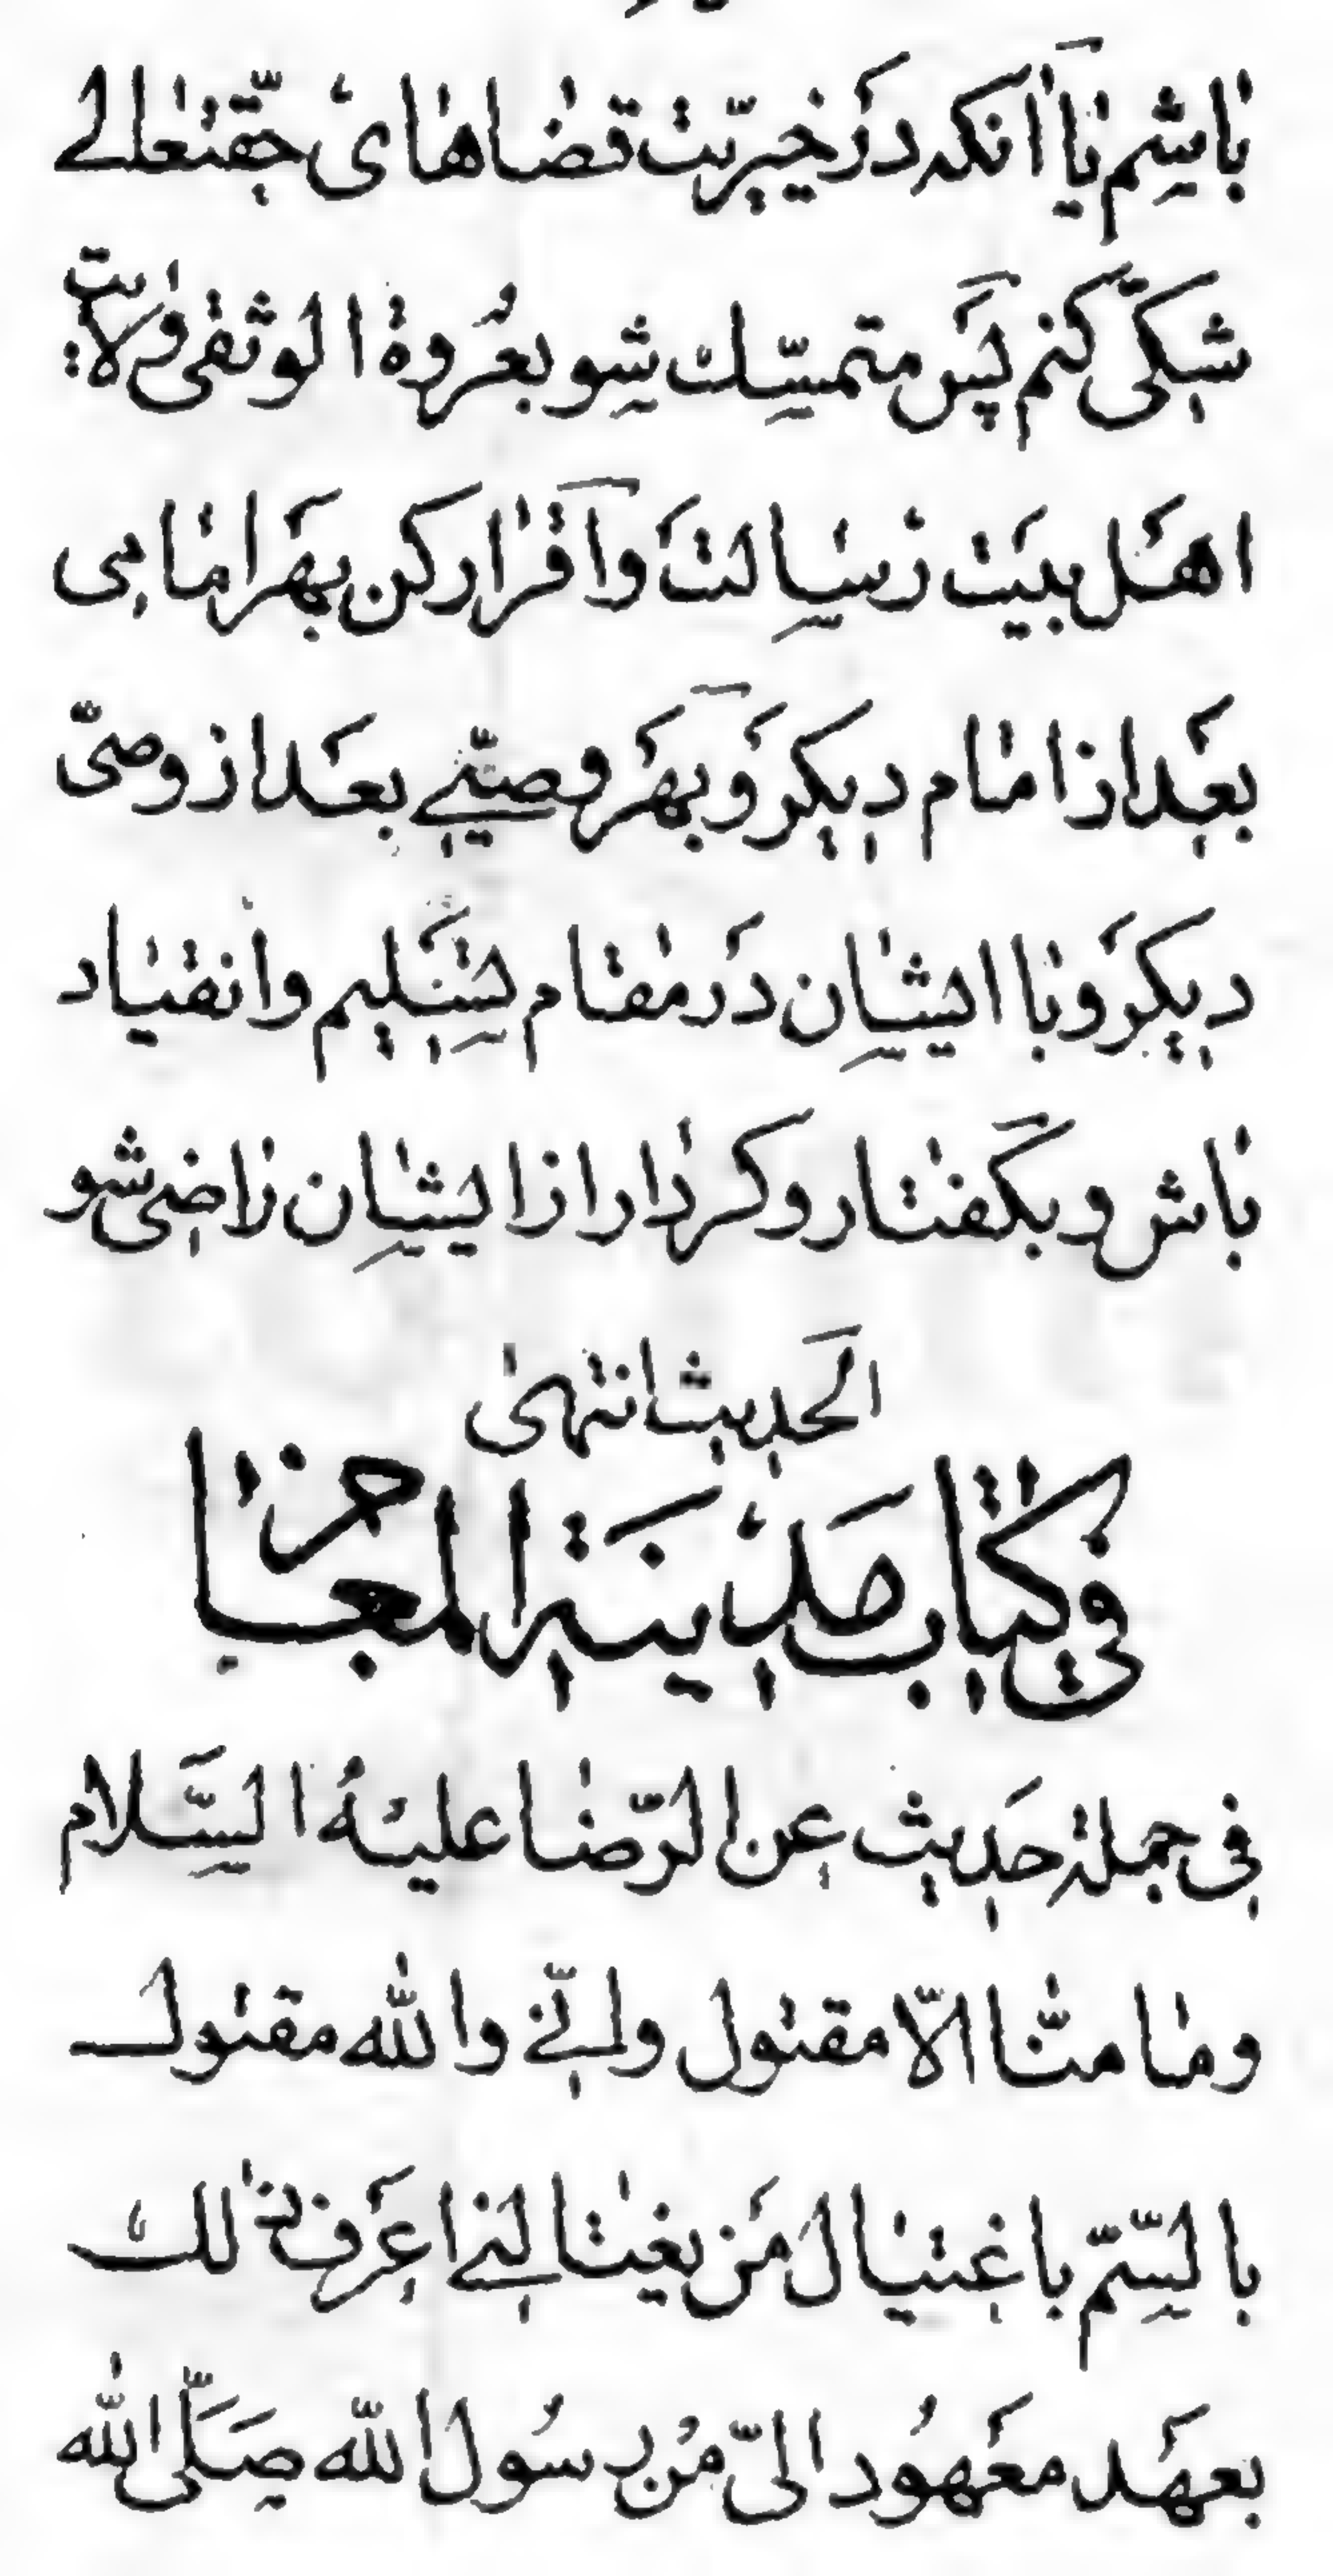 باشم یا آنکه در خیریت قضاهای حقتعالے
شکی کنم پس متمسك شو بعروة الوثقی ولایت
اهل بیت رسالت و اقرار کن بهر امامی
بعد از امام دیکر و بهر وصیّے بعد از وصیّ
دیکر و با ایشان در مقام تسلیم و انقیاد
باش و بکفتار و کردار از ایشان راضی شو
الحدیث انتهی
فی کتاب مدینة المعاجز
فی جملة حدیث عن الرّضا علیه السَّلام
وما منّا الاّ مقتول وانّے والله مقتول
بالسّمّ باغتیال مَن یغتالنے اعرف ذلك
بعهد معهود الیّ من رسول الله صَلَّی الله